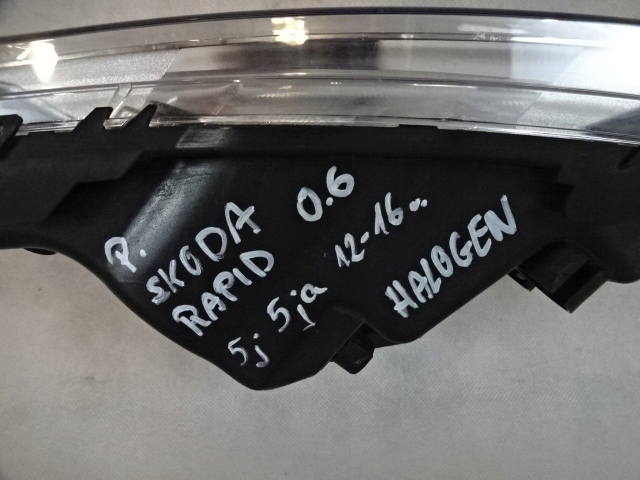 P.
SKODA 0.6
RAPID
5j 5ja 12-16..
HALOGEN